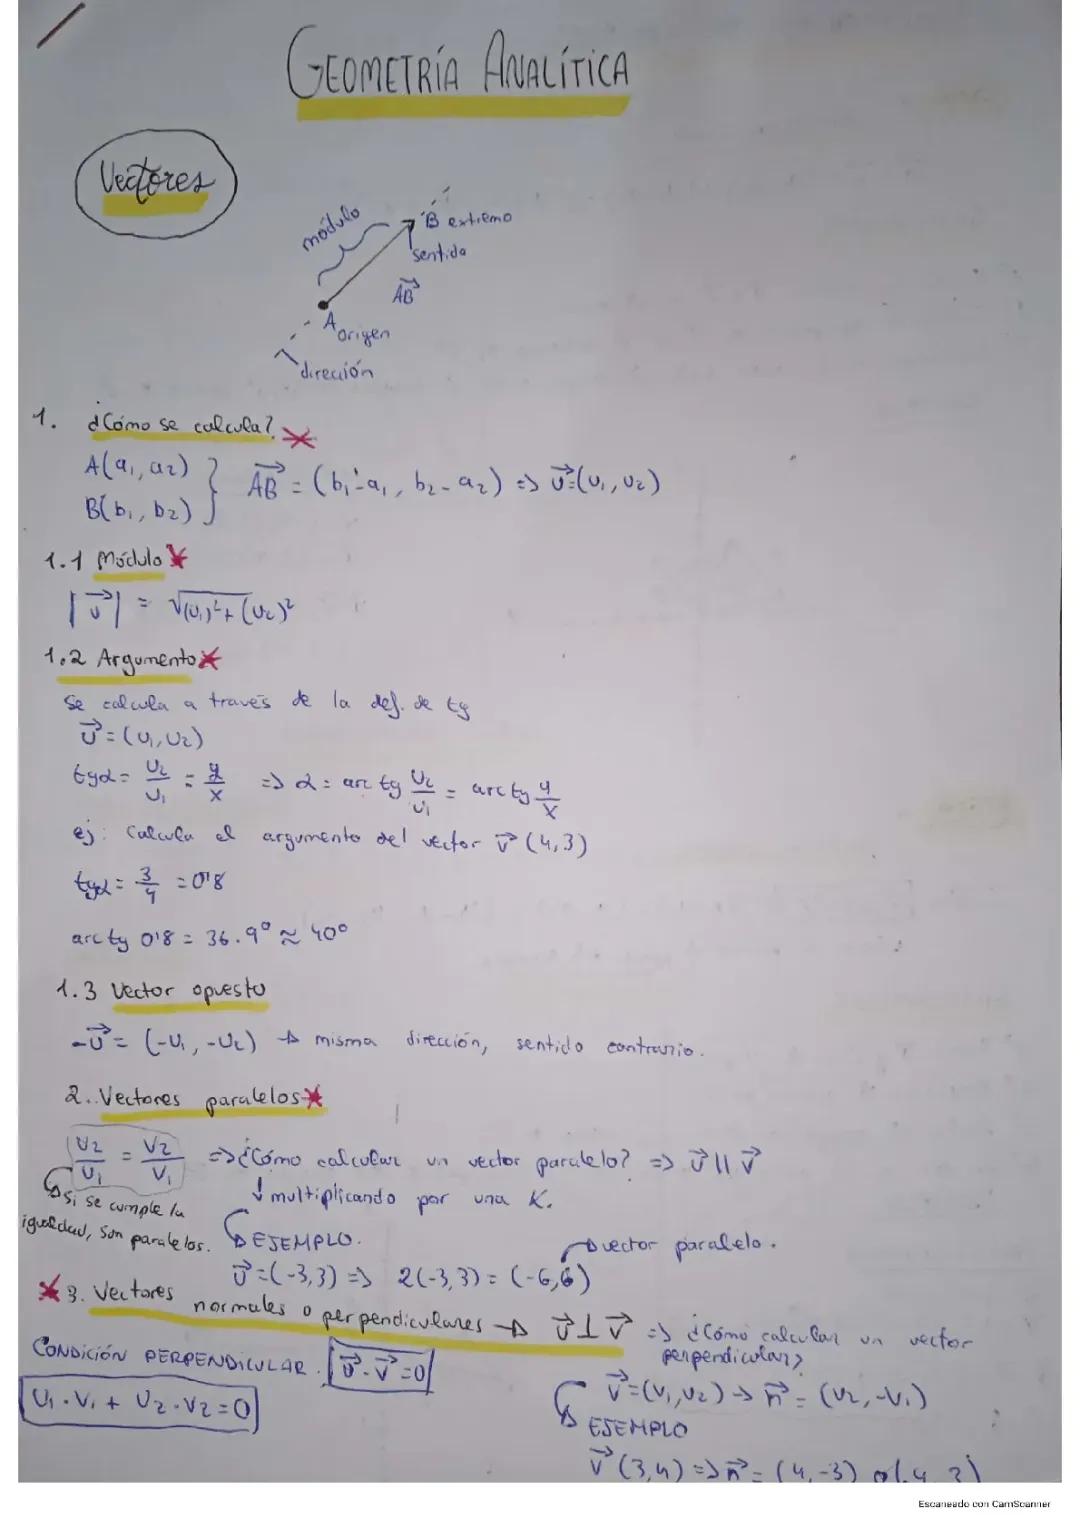 GEOMETRÍA ANALÍTICA
Vectores
módulo
B extremo
sentido
AB
A origen
dirección
1. ¿Cómo se calcula?
A(a₁, a₂)
B(b₁, b₂)
AB = (b₁-a₁, b₂-a₂) => u⃗=(u₁, u₂)
1.1 Módulo
|u⃗| = √(u₁)²+(u₂)²
1.2 Argumento
Se calcula a través de la def. de tg
u⃗=(u₁,u₂)
tgα= u₂/u₁ = y/x => α= arc tg u₂/u₁ = arc tg y/x
ej: Calcula el argumento del vector v⃗ (4,3)
tgα= 3/4 =0'8
arc tg 0'8 = 36.9º ≈ 40º
1.3 Vector opuesto
-u⃗= (-u₁, -u₂) → misma dirección, sentido contrario.
2. Vectores paralelos
u₂/u₁ = v₂/v₁ => ¿Cómo calcular un vector paralelo? => u⃗ || v⃗
↓ multiplicando por una K.
si se cumple la
igualdad, son paralelos.
EJEMPLO.
vector paralelo.
u⃗=(-3,3) => 2(-3,3) = (-6,6)
3. Vectores normales o perpendiculares → u⃗⊥v⃗ => ¿Cómo calcular un vector
perpendicular?
CONDICIÓN PERPENDICULAR. u⃗·v⃗=0
u₁·v₁ + u₂·v₂=0
v⃗=(v₁,v₂) → n⃗= (v₂,-v₁)
EJEMPLO
v⃗ (3,4) => n⃗= (4,-3) o
Escaneado con CamScanner